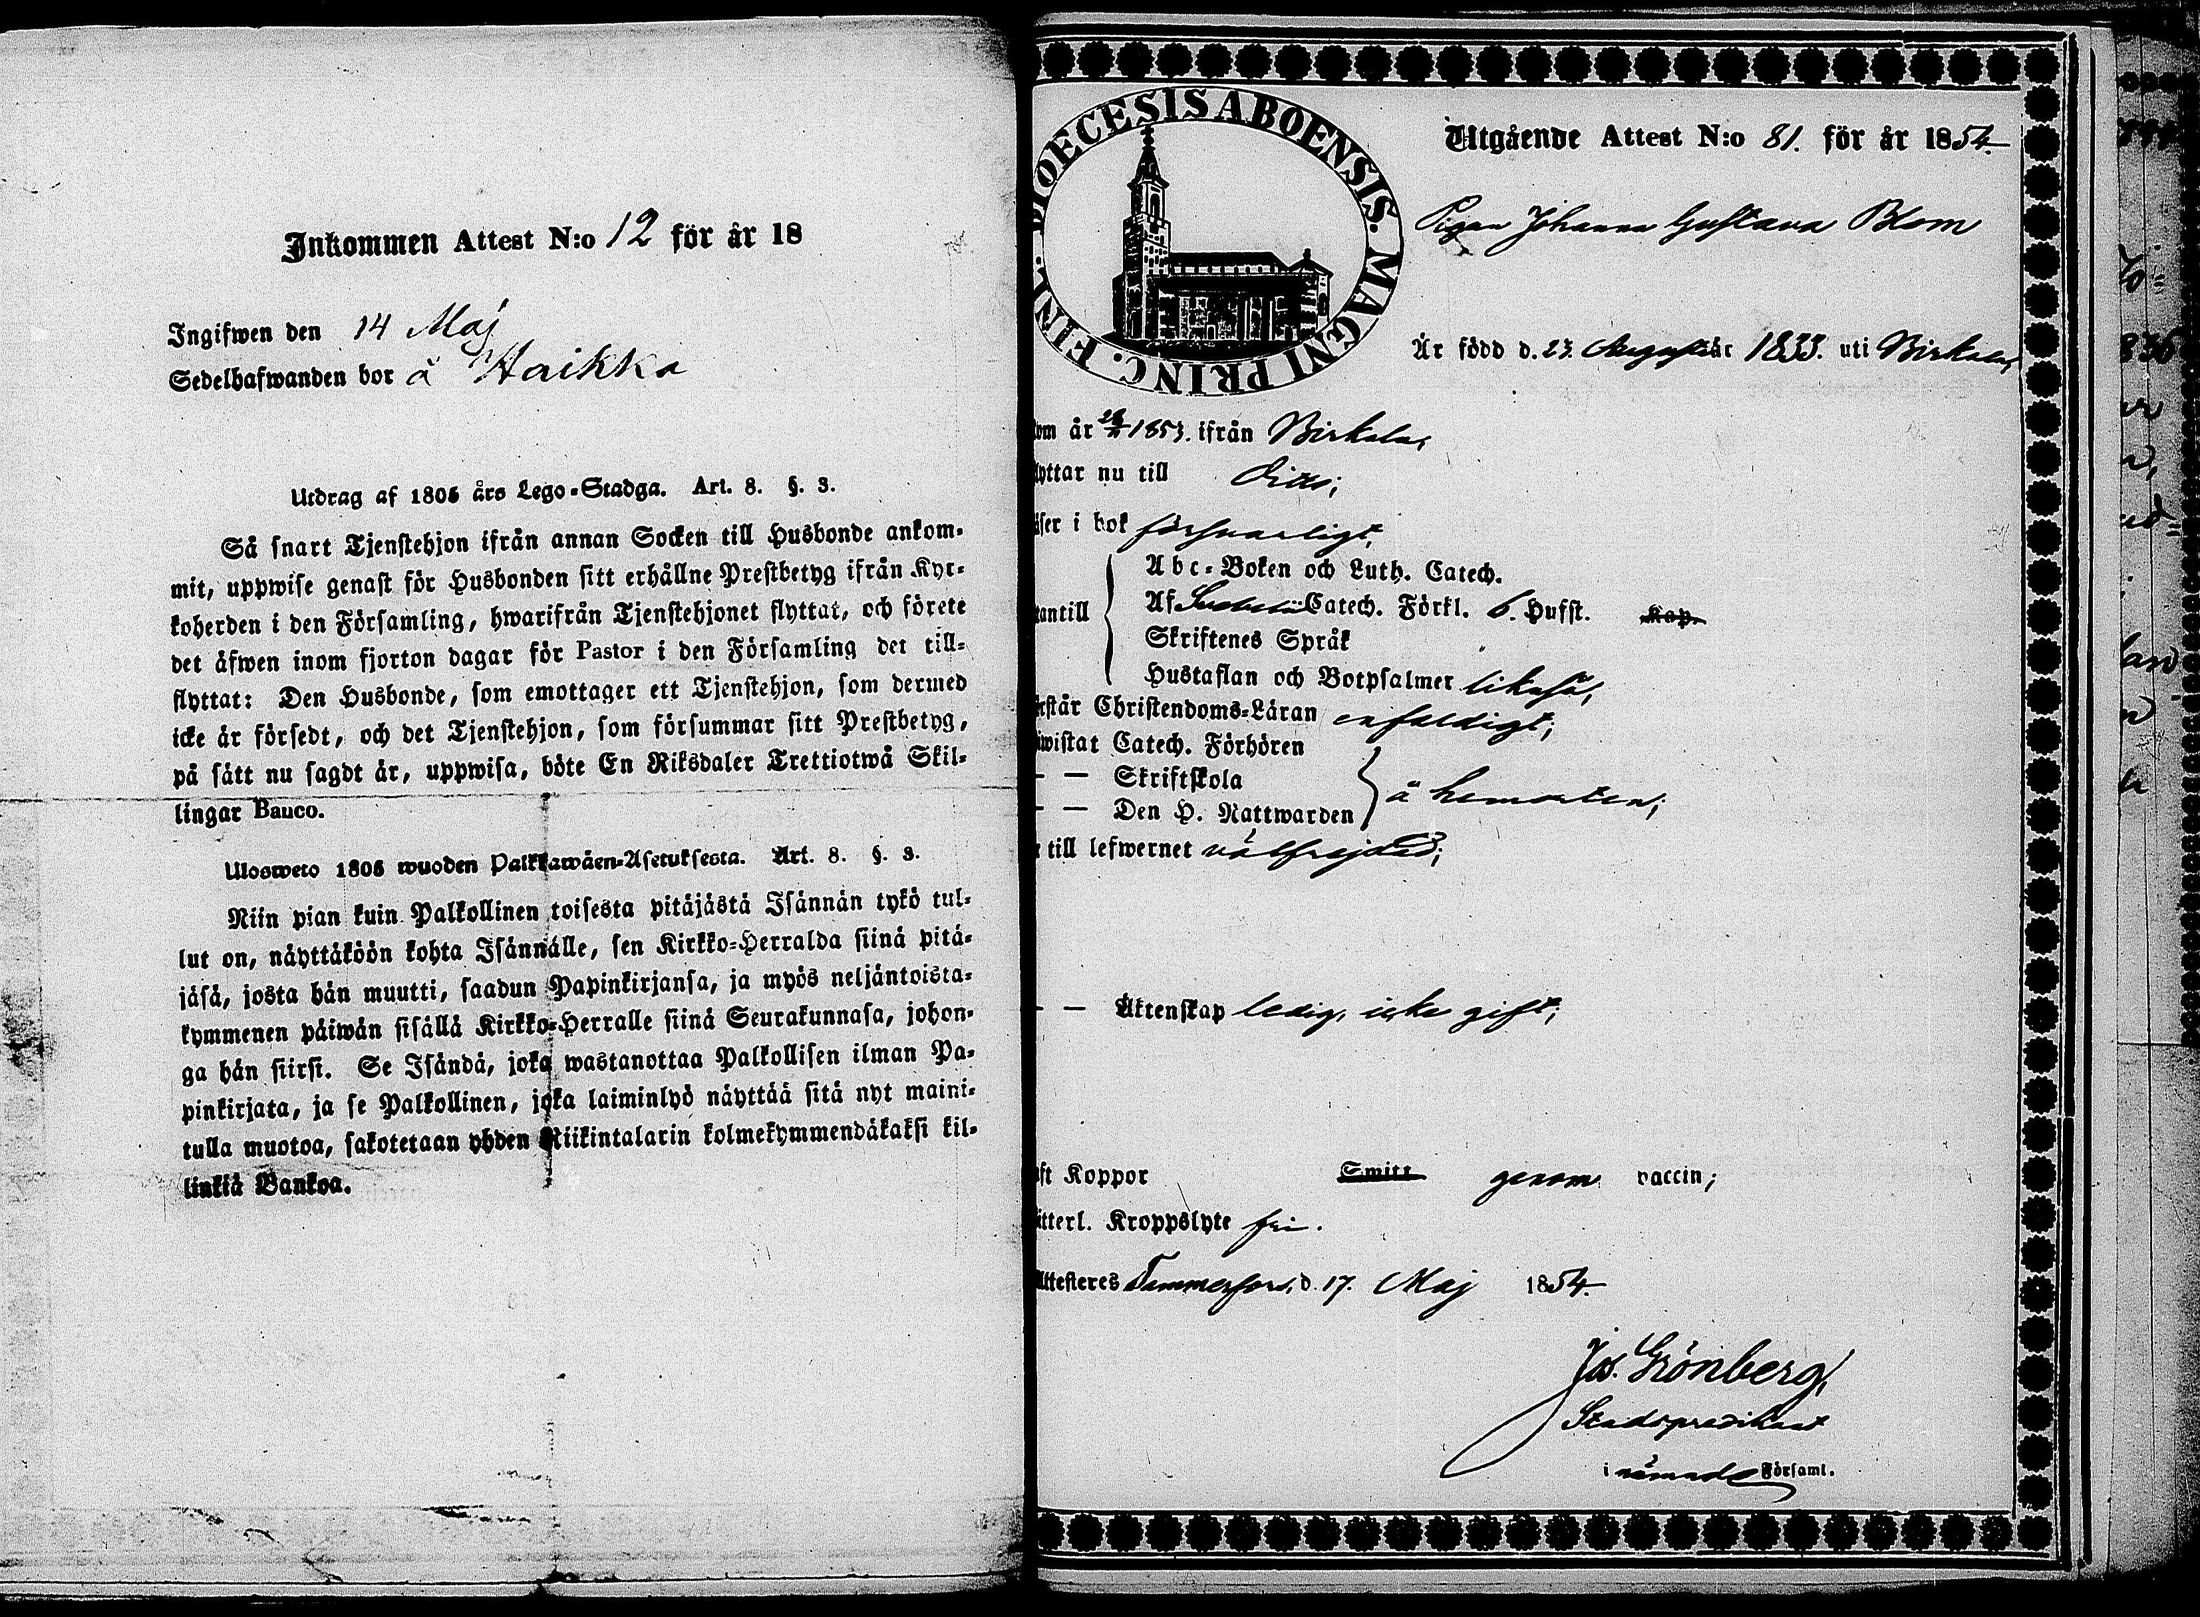 Inkommen Attest N:o 12 för år 18
Ingifwen den 14 Maj
Sedelhafwanden bor å Haikka
Utdrag af 1805 års Lego-Stadga. Art. 8. §. 3.
Så snart Tjenstehjon ifrån annan Socken till Husbonde ankom-
mit, uppwise genast för Husbonden sitt erhållne Prestbetyg ifrån Kyr-
koherden i den Församling, hwarifrån Tjenstehjonet flyttat, och förete
det äfwen inom fjorton dagar för Pastor i den Församling det till-
flyttat: Den Husbonde, som emottager ett Tjenstehjon, som dermed
icke är försedt, och det Tjenstehjon, som försummar sitt Prestbetyg,
på sätt nu sagdt är, uppwisa, böte En Riksdaler Trettiotwå Skil-
lingar Banco.
Ulosweto 1805 wuoden Palkkawäen-Asetuksesta. Art. 8. §. 3.
Niin pian kuin Palkollinen toisesta pitäjästä Isännän tykö tul-
lut on, näyttäköön kohta Isännälle, sen Kirkko-Herralda siinä pitä-
jäsä, josta hän muutti, saadun Papinkirjansa, ja myös neljäntoista-
kymmenen päiwän sisällä Kirkko-Herralle siinä Seurakunnasa, johon-
ga hän siirsi. Se Isändä, joka wastanottaa Palkollisen ilman Pa-
pinkirjata, ja se Palkollinen, joka laiminlyö näyttää sitä nyt maini-
tulla muotoa, sakotetaan yhden Riikintalarin kolmekymmendäkaksi kil-
linkiä Bankoa.
DIOECESIS ABOENSIS. MAGNI PRINC. FINL.
Utgående Attest N:o 81. för år 1854.
Pigan Johanna Gustava Blom
Är född d. 23. Augusti år 1833. uti Birkala,
kom år 1853. ifrån Birkala,
lyttar nu till Ditto;
äser i bok försvarligt,
Abc-Boken och Luth. Catech.
Af Catech. Förkl. 6. Hufst. Kap.
tantill
Skriftenes Språk
Hustaflan och Botpsalmer likaså,
rstår Christendoms-Läran enfaldigt;
iwistat Catech. Förhören
— — Skriftskola
— — Den H. Nattwarden å hemorten;
till lefwernet välfrejdad;
— — Äktenskap ledig, icke gift;
ft Koppor Smitt genom vaccin;
itterl. Kroppslyte fri.
Attesteres Tammerfors, d. 17. Maj 1854.
Jos. Grönberg,
Stadspredikant
i nämnde Församl.